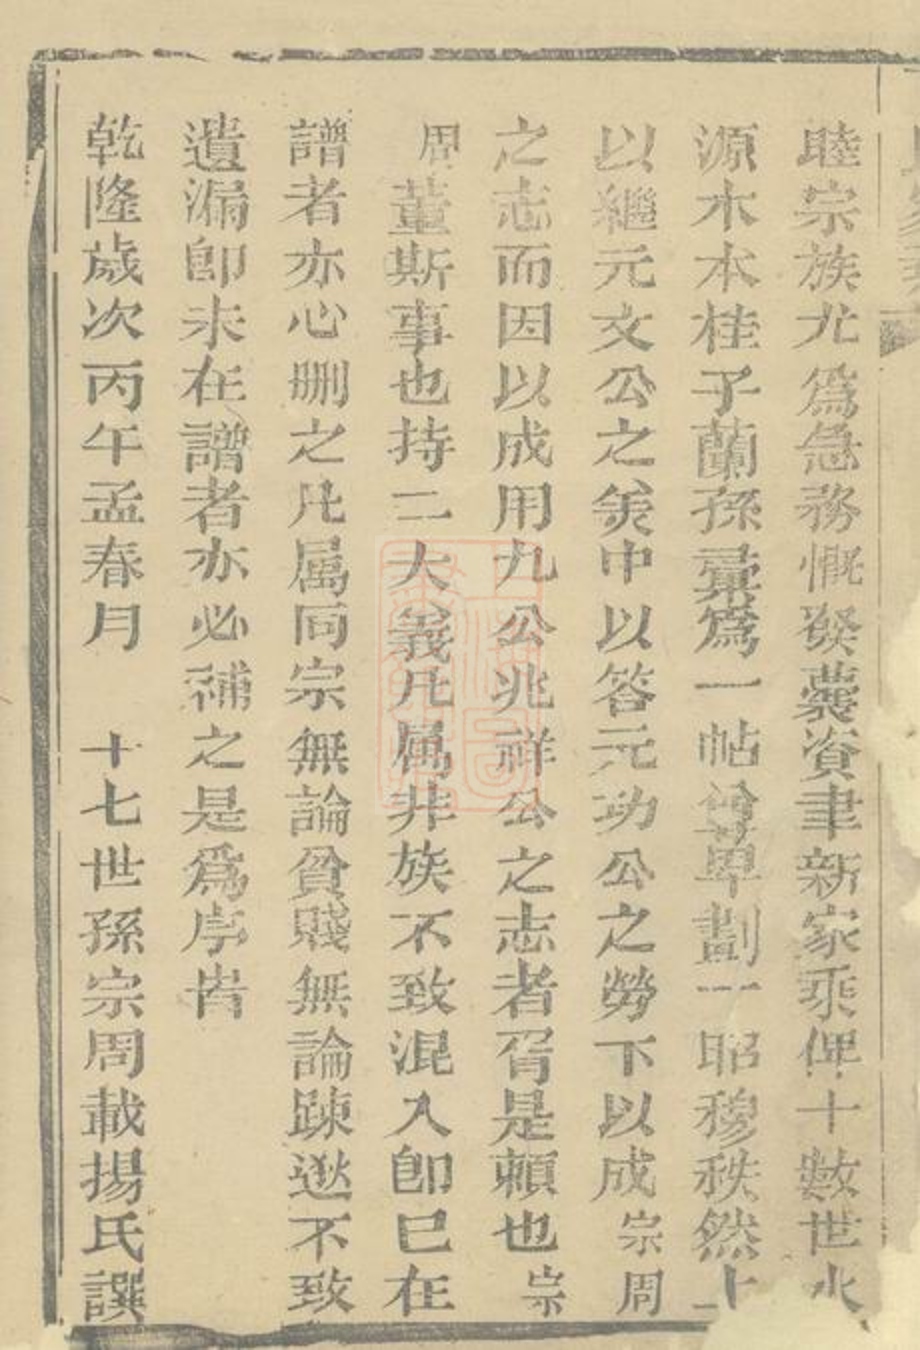 睦宗族尤為急務慨發蕆資聿新家乘俾十數世水
源木本桂子蘭孫彙為一帖尊卑劃一昭穆秩然上
以繼元文公之美中以答元功公之勞下以成宗周
之志而因以成用九公兆祥公之志者胥是賴也宗
周董斯事也持二大義凡属非族不致混入即已在
譜者亦必刪之凡属同宗無論貧賤無論踈逖不致
遺漏即未在譜者亦必補之是為序旹
乾隆歲次丙午孟春月 十七世孫宗周載揚氏譔